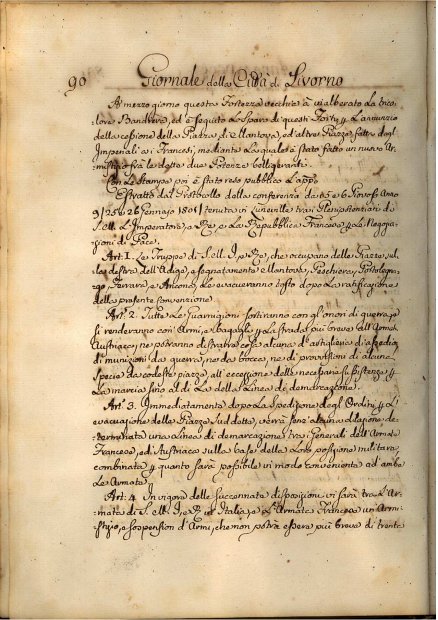 90 Giornale della Città di Livorno
A mezzo giorno questa Fortezza vecchia à inalberato La trico-
lore Bandiera, ed è seguito Lo Sparo di questi Forti p L'annunzio
della cessione della Piazza di Mantova, ed altre Piazze fatta dagl'
Imperiali ai Francesi, mediante La quale è stato fatto un nuovo Ar-
mistizio frà le dette due Potenze belligeranti.
Con Le Stampe poi è stato reso pubblico L'app.
Estratto dal Protocollo della conferenza dei 5 e 6 Piovoso Anno
9/25 e 26 Gennajo 1801/ tenuta in Luneville tra i Plenipotenziari di
S. M. L'Imperatore, e Re e La Repubblica Francese p Le Negozia-
zioni di Pace.
Art. 1. Le Truppe di S. M. I. e Re, che occupano delle Piazze sul-
la destra dell'Adige, e segnatamente Mantova, Peschiera, Portolegna-
go, Ferrara, e Ancona, Le evacueranno tosto dopo La ratificazione
della presente Convenzione.
Art. 2. Tutte Le Guarnigioni sortiranno con gl'onori di guerra, e
si renderanno con Armi, e bagagli p La strada più breve all'Armata
Austriaca, ne potranno distrarre cosa alcuna d'artiglieria d'assedio,
di munizioni da guerra, ne da bocca, ne di provvisioni di alcuna
specie da codeste piazze, all'eccezione della necessaria sussistenza p
La marcia fino al di Là della Linea di demarcazione.
Art. 3. Immediatamente dopo La Spedizione degl'Ordini p L'
evacuazione delle Piazze Suddette, verrà senz'alcuna dilazione de-
terminata una Linea di demarcazione tra i Generali dell'Armata
Francese, ed Austriaca sulla base della Loro posizione militare,
combinata p quanto sarà possibile in modo conveniente ad ambe
Le Armate.
Art. 4. In vigore delle succennate disposizioni vi sarà tra L'Ar-
mata di S. M. I. e R. in Italia, e L'Armata Francese un Armi-
stizio, e sospension d'Armi, che non potrà essere più breve di trenta